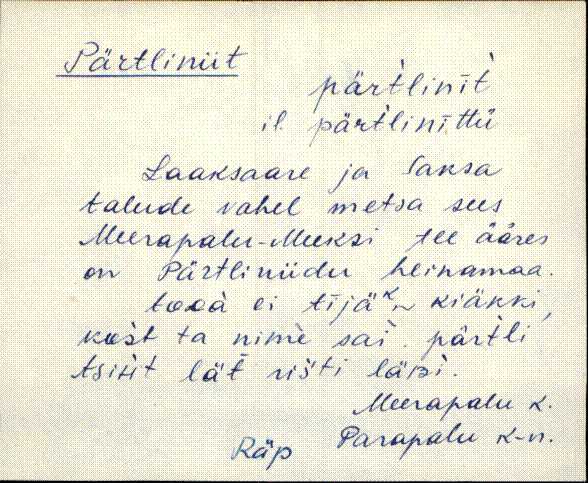 Pärtliniit
pärtlinīt̀
il. pärtlinīttü
Laaksaare ja Saksa
talude vahel metsa sees
Meerapalu-Meeksi tee ääres
on Pärtliniidu heinamaa.
ei tījä kiäkki,
kost ta nime sai. pärtli
lät risti läpi.
Meerapalu k.
Räp Parapalu k-n.